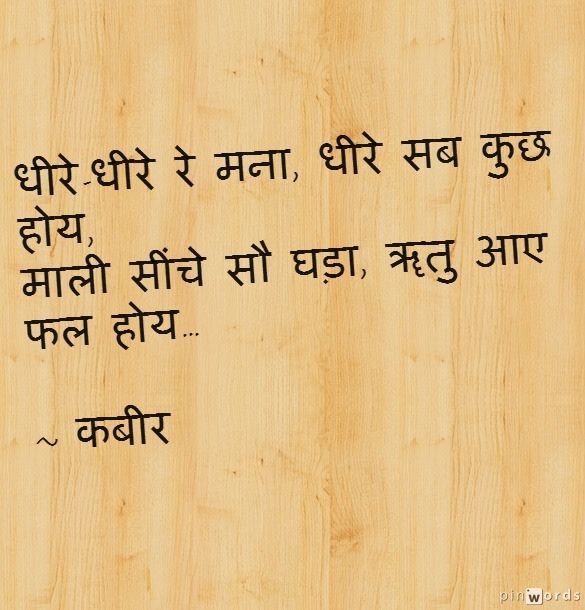 धीरे-धीरे रे मना, धीरे सब कुछ
होय,
माली सींचे सौ घड़ा, ॠतु आए
फल होय...
~ कबीर
pinwords